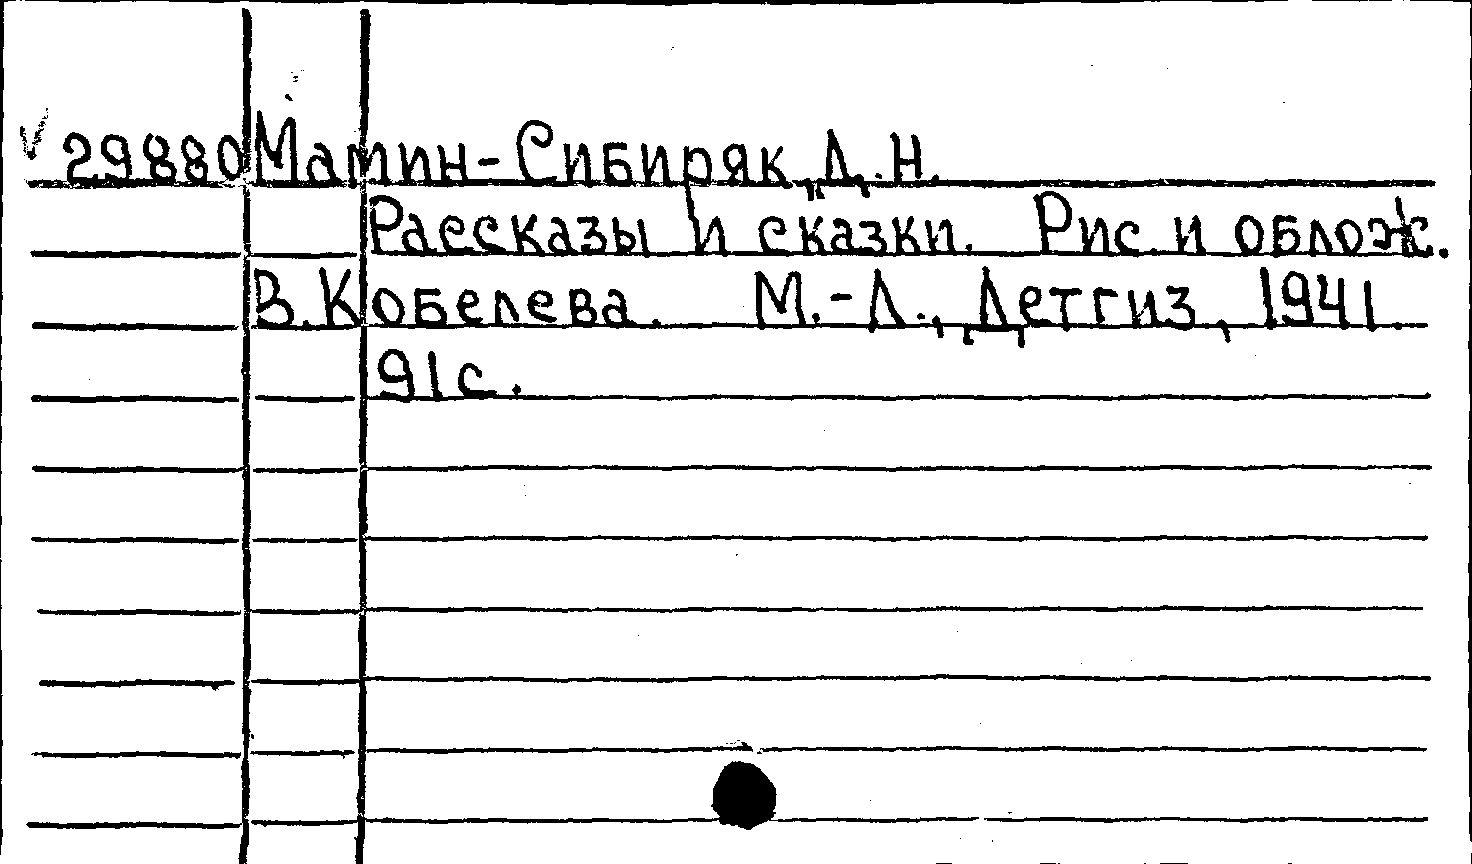 29880 Мамин-Сибиряк, Д.Н.
Рассказы и сказки. Рис. и облож.
В.Кобелева. М.-Л., Детгиз, 1941.
91с.